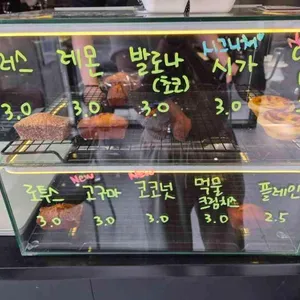 레몬
발로나
(초코)
시그니처♡
시가
3.0
3.0
3.0
3.0
New
New
로투스
고구마
코코넛
먹물
크림치즈
플레인
3.0
3.0
3.0
3.0
2.5